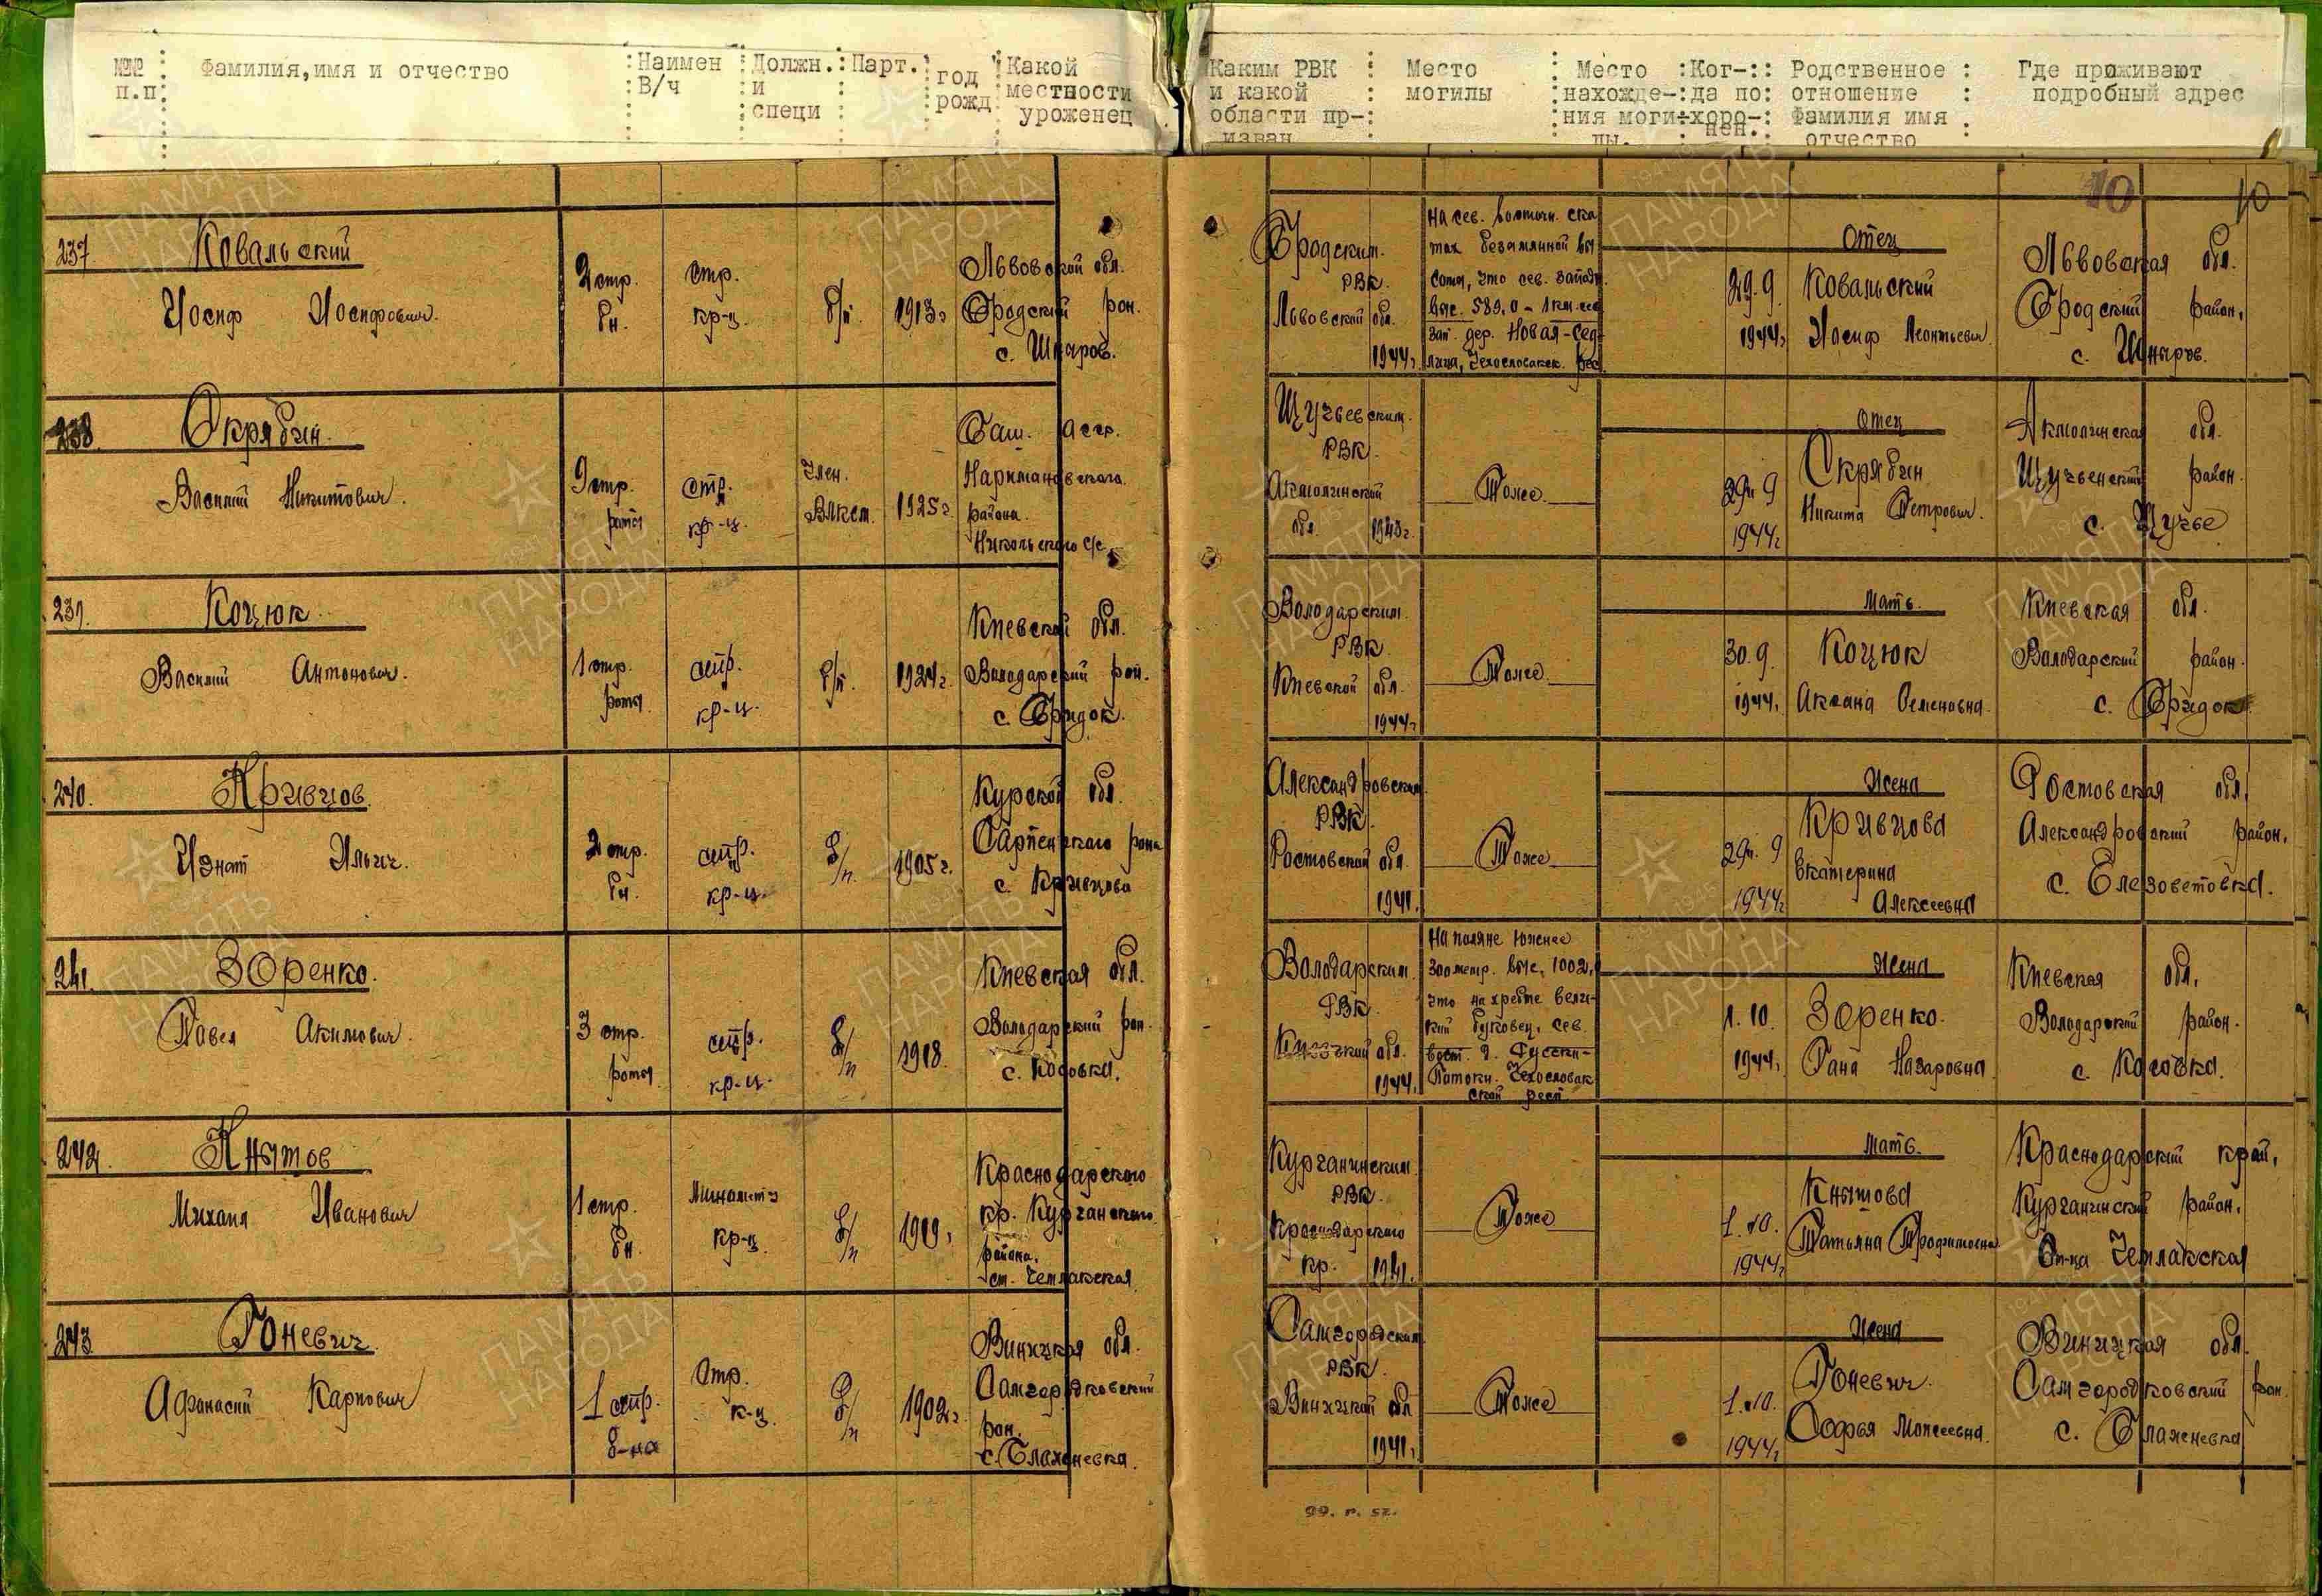 №№ п.п. Фамилия, имя и отчество Наимен В/ч Должн. и специ Парт. год рожд Какой местности уроженец
Каким РВК и какой области призван Место могилы Место нахождения могилы. Когда похоронен. Родственное отношение Фамилия имя отчество Где проживают подробный адрес
10 10
237. Ковальский
Иосиф Иосифович.
2 стр. бн.
стр. кр-ц.
б/п.
1913г
Львовской обл.
Бродский рон.
с. Шныров.
Бродским
РВК.
Львовской обл.
1944г.
На сев. восточн. ска
тах безымянной вы
соты, что сев. западн.
выс. 589,0 – 1 км. сев
зап. дер. Новая-Сед
лица, Чехословакск. рес
29.9
1944г
Отец
Ковальский
Иосиф Леонтьевич
Львовская обл.
Бродский район,
с. Шныров.
238. Скрябин.
Василий Никитович.
стр. рота
стр. кр-ц.
Член.
Влксм.
1925г
Наримановского
района.
Никольского с/с
Щучьевским.
РВК.
Акмолинской
обл. 1943г.
Тоже.
29. 9
1944г
Отец
Скрябин
Никита Петрович.
Акмолинская обл.
Щучьенский район.
с. Щучье
239. Коцюк.
Василий Антонович.
1 стр. рота
стр. кр-ц.
б/п.
1924г.
Киевской обл.
Володарский рон.
Володарским
РВК.
Киевской обл.
1944г
Тоже.
30.9.
1944г.
Мать.
Коцюк
Аксана Семеновна.
Киевская обл.
Володарский район.
240. Кривцов.
Игнат Ильич.
2 стр. бн.
стр. кр-ц.
б/п.
1905г.
Курской обл.
с. Кривцова
Александровским
РВК.
Ростовской обл.
1941.
Тоже
29. 9
1944г
Жена
Кривцова
Екатерина
Алексеевна
Ростовская обл.
Александровский район.
с. Елезоветовка.
241. Зоренко.
Павел Акимович.
3 стр. рота
стр. кр-ц.
б/п
1918.
Киевская обл.
Володарский рон.
с. Косовка.
Володарским.
РВК.
Киевской обл.
1944г.
На поляне южнее
300 метр. выс. 1002,
что на хребте Вели-
кий Буковец, сев.
вост. д. Русски-
Патоки. Чехословак
ской респ
1. 10.
1944г.
Жена
Зоренко.
Назаровна
Киевская обл.
Володарский район.
с. Косовка.
242. Кнытов
Михаил Иванович
1 стр. бн.
кр-ц.
б/п
Краснодарского
кр. Курганского
района.
ст.
Курганинским
РВК.
Краснодарского
кр. 1941.
Тоже
1. 10.
1944г
Мать.
Кнытова
Татьяна Трофимовна
Краснодарский край.
Курганинский район.
Ст-ца
243. Гоневич.
Афанасий Карпович
1 стр. б-на
Стр. к-ц.
б/п
1902г.
Виницкая обл.
Самгородковский
рон.
с. Блаженевка.
Самгородским
РВК.
Виницкой обл
1941г.
Тоже
1. 10.
1944г
Жена
Гоневич.
Софья Моисеевна.
Виницкая обл.
Самгородковский рон.
с. Блаженевка